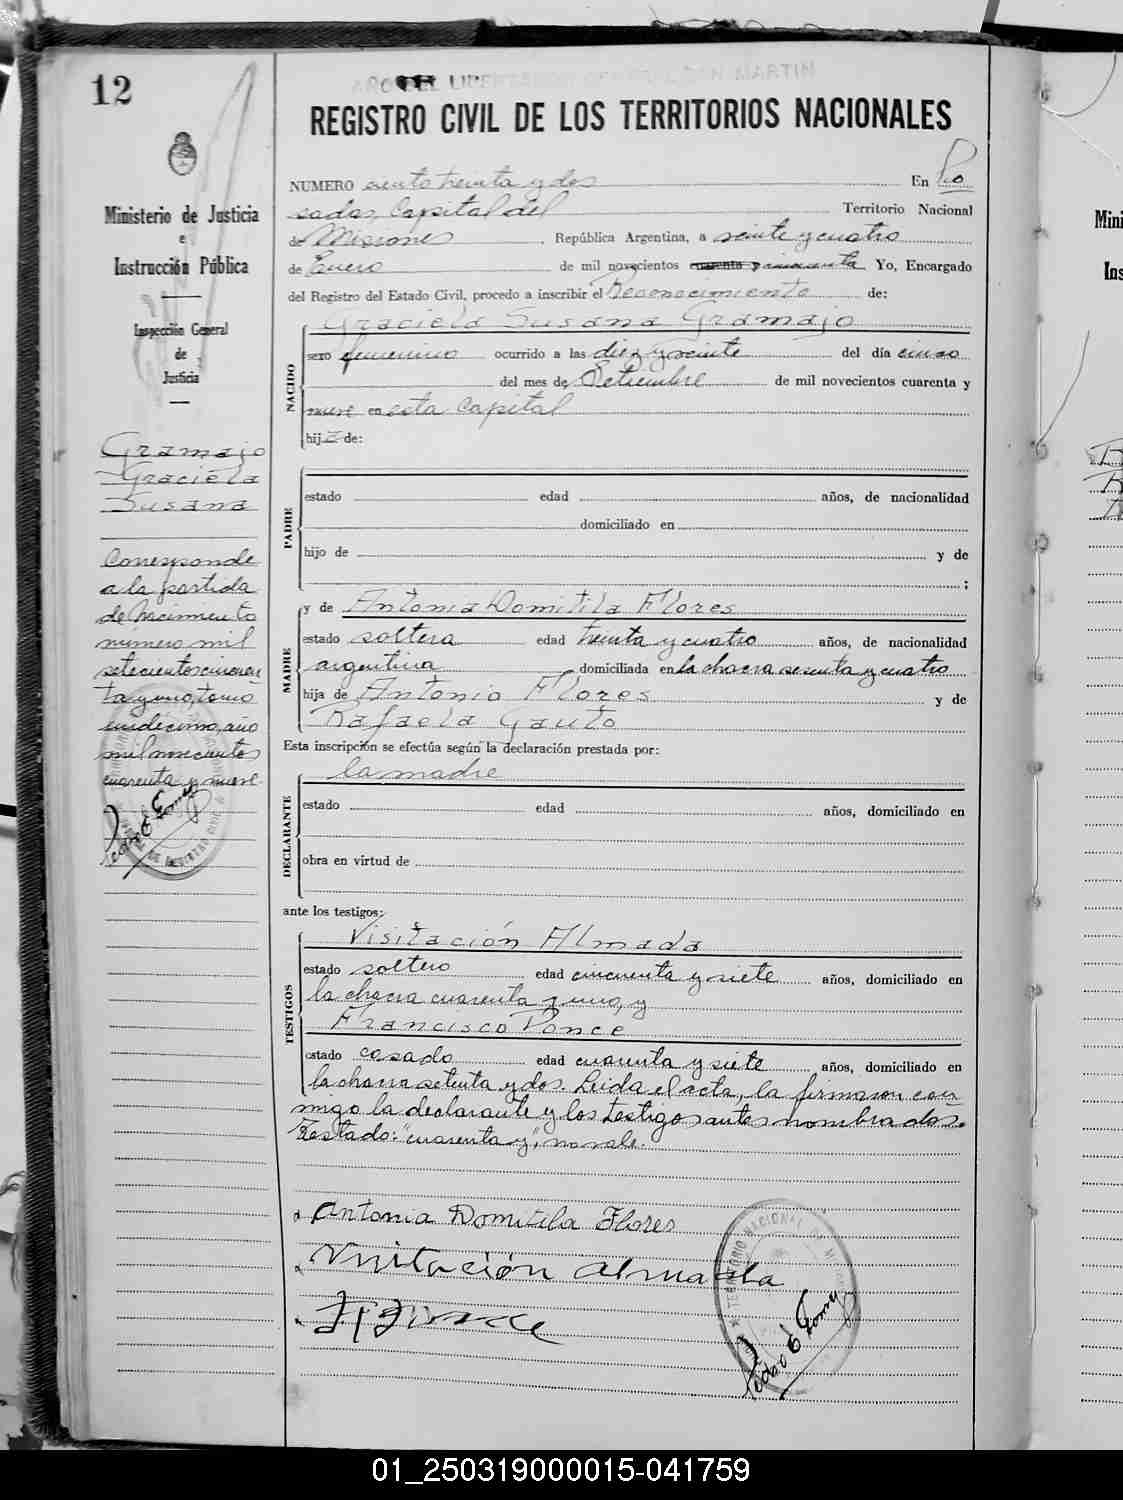 12
AÑO DEL LIBERTADOR GENERAL SAN MARTIN
REGISTRO CIVIL DE LOS TERRITORIOS NACIONALES
Ministerio de Justicia
e
Instrucción Pública
Inspección General
de
Justicia
Gramajo
Graciela
Susana
Corresponde
a la partida
de Nacimiento
número mil
setecientos cincuen
ta y uno, tomo
undécimo, año
mil novecientos
cuarenta y nueve
NUMERO ciento treinta y dos En Po
sadas, Capital del Territorio Nacional
de Misiones, República Argentina, a veinte y cuatro
de Enero de mil novecientos cuarenta y cincuenta Yo, Encargado
del Registro del Estado Civil, procedo a inscribir el Reconocimiento de:
NACIDO
Graciela Susana Gramajo
sexo femenino ocurrido a las diez y veinte del día cinco
del mes de Setiembre de mil novecientos cuarenta y
nueve en esta Capital
hija de:
PADRE
estado edad años, de nacionalidad
domiciliado en
hijo de y de
;
MADRE
y de Antonia Domitila Flores
estado soltera edad treinta y cuatro años, de nacionalidad
argentina domiciliada en la chacra sesenta y cuatro
hija de Antonio Flores y de
Rafaela Gauto
Esta inscripción se efectúa según la declaración prestada por:
la madre
DECLARANTE
estado edad años, domiciliado en
obra en virtud de
ante los testigos:
TESTIGOS
Visitación Almada
estado soltero edad cincuenta y siete años, domiciliado en
la chacra cuarenta y uno, y
Francisco Ponce
estado casado edad cuarenta y siete años, domiciliado en
la chacra setenta y dos. Leida el acta, la firmaron con
migo la declarante y los testigos antes nombrados.
Testado: "cuarenta y", no vale.
Antonia Domitila Flores
Visitación Almada
Pedro E Gomez
01_250319000015-041759